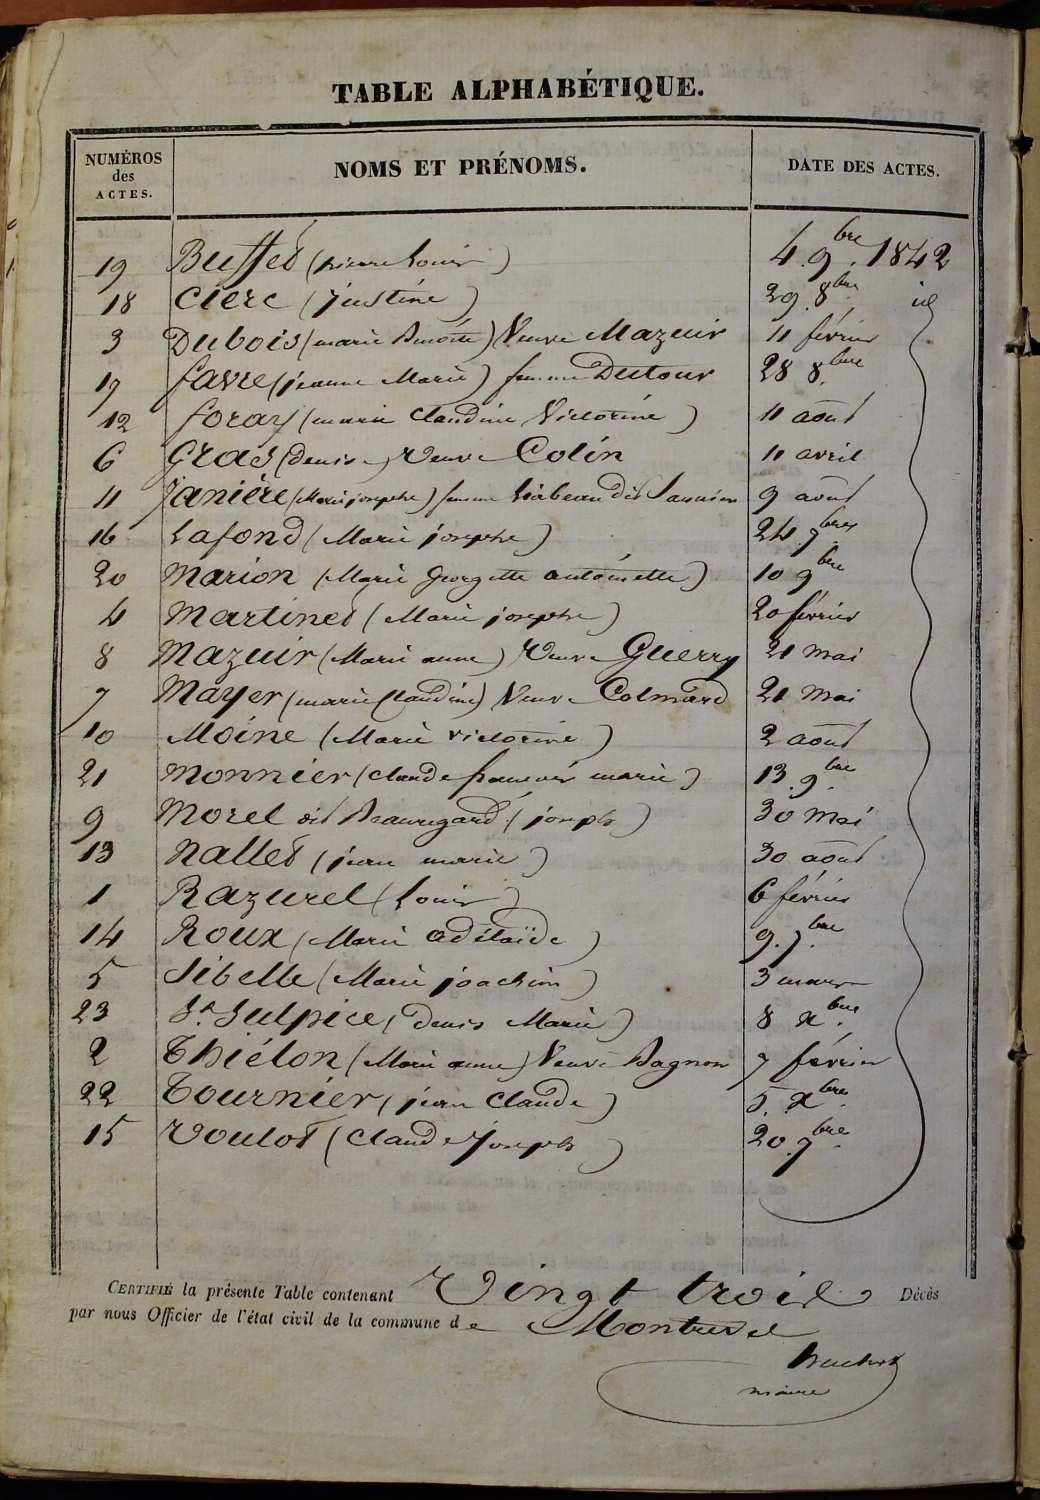 TABLE ALPHABÉTIQUE.
NUMÉROS des ACTES. NOMS ET PRÉNOMS. DATE DES ACTES.
19 Buffet (pierre Louis) 4. 9bre. 1842
18 Clerc (justine) 29. 8bre. id
3 Dubois (marie Benoite) Veuve Mazuir 11 février
17 favre (jeanne Marie) femme Dutour 28 8bre
12 foray (marie Claudine Victorine) 11 août
6 Gras (denise) veuve Colin 11 avril
11 Janière (Marie josephe) femme dit 9 août
16 Lafond (Marie josephe) 24. 7bre
20 Marion (Marie Georgette antoinette) 10 9bre
4 Martinet (Marie josephe) 20 février
8 Mazuir (Marie anne) Veuve Guerry 21 mai
7 Mayer (marie Claudine) Veuve Colmard 21 Mai
10 Moine (Marie victorine) 2 août
21 Monnier (claude francois marie) 13. 9bre.
9 Morel dit Beauregard (joseph) 30 Mai
13 Nallet (jean marie) 30 août
1 Razurel (Louis) 6 février
14 Roux (Marie adélaïde) 9. 7bre.
5 Sibelle (Marie joachim) 3 mars
23 St. Sulpice (denis Marie) 8 xbre.
2 Thiélon (Marie anne) Veuve Bagnon 7 février
22 Tournier (jean Claude) 5. xbre.
15 Voulot (Claude Joseph) 20. 7bre.
CERTIFIÉ la présente Table contenant Vingt trois Décès
par nous Officier de l'état civil de la commune de Montrevel
maire